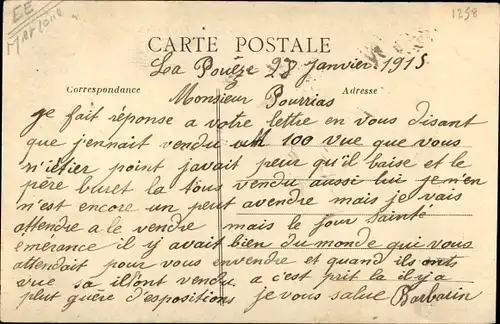 EE
1258
CARTE POSTALE
La Pouëze 28 Janvier 1915
Correspondance
Adresse
Monsieur Pourrias
je fait réponse a votre lettre en vous disant
que j'ennait vendu 100 vue que vous
n'étier point javait peur qu'il baise et le
père buret la tous vendu aussi lui je n'en
n'est encore un peut avendre mais je vais
attendre a le vendre mais le jour Sainte
émérance il y avait bien du monde qui vous
attendait pour vous envendre et quand ils onts
vue sa il'sont vendu a c'est prit la il y a
plut guère d'espositions je vous salue Barbarin